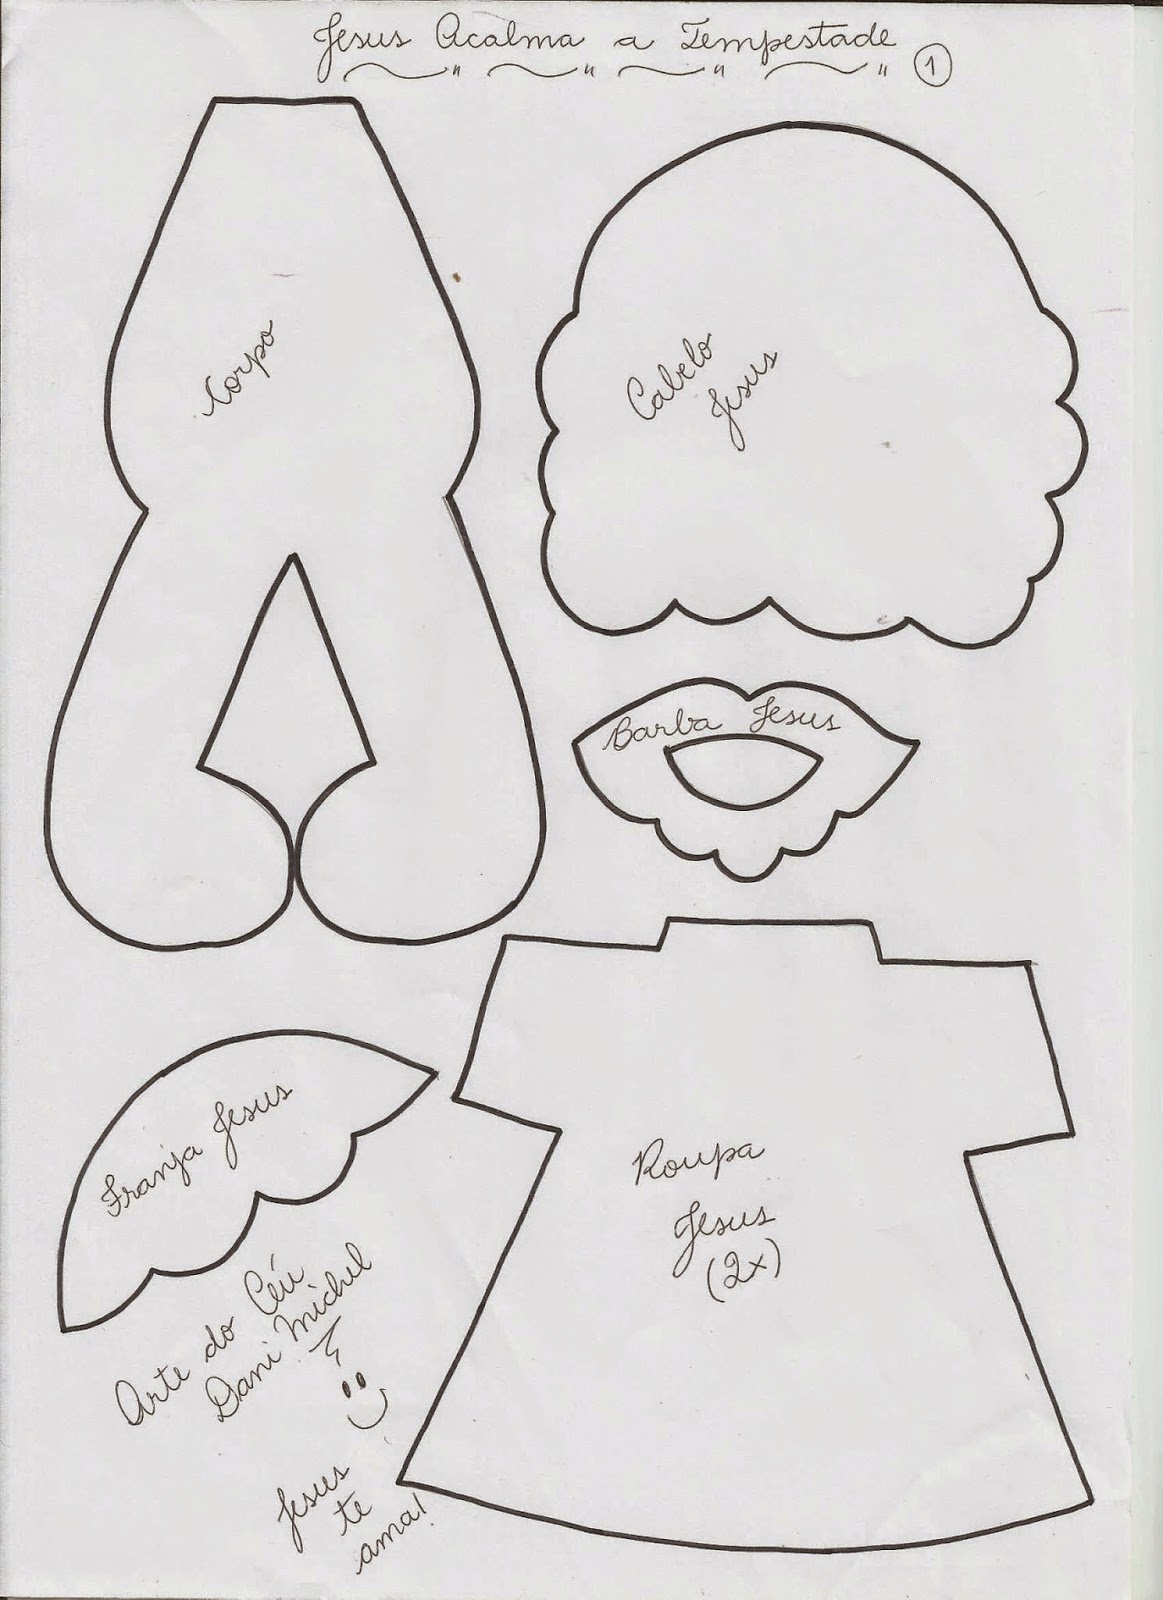 Jesus Acalma a Tempestade
1
Corpo
Cabelo
Jesus
Barba Jesus
Franja Jesus
Roupa
Jesus
(2x)
Arte do Céu
Dani Michel
Jesus
te
ama!